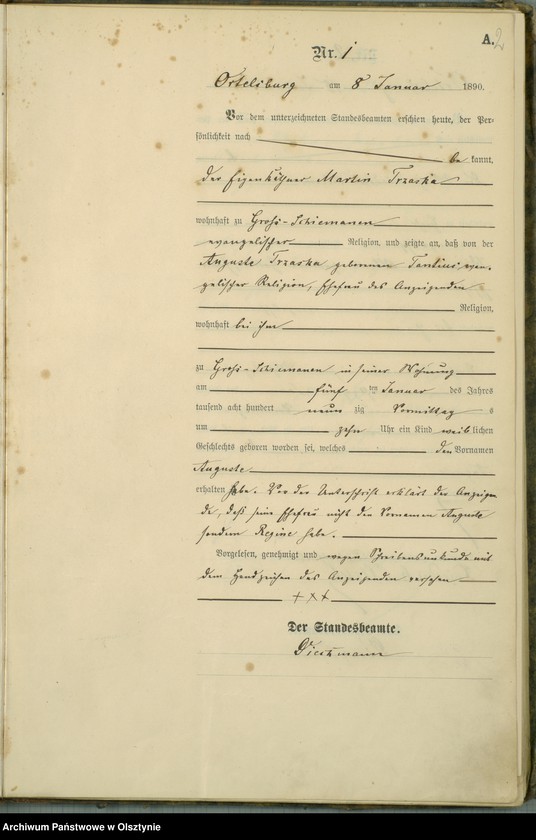 A. 2
Nr. 1
Ortelsburg am 8 Januar 1890.
Vor dem unterzeichneten Standesbeamten erschien heute, der Per-
sönlichkeit nach
be kannt,
der Eigenkäthner Martin Trzaska
wohnhaft zu Groß-Schiemanen
evangelischer Religion, und zeigte an, daß von der
Auguste Trzaska geborenen evan-
gelischer Religion, Ehefrau des Anzeigenden
Religion,
wohnhaft bei ihm
zu Groß-Schiemanen in seiner Wohnung
am fünf ten Januar des Jahres
tausend acht hundert neun zig Vormittag s
um zehn Uhr ein Kind weib lichen
Geschlechts geboren worden sei, welches den Vornamen
Auguste
erhalten habe. Vor der Unterschrift erklärt der Anzeigen
de, daß seine Ehefrau nicht den Vornamen Auguste
sondern Regine habe.
Vorgelesen, genehmigt und wegen Schreibensunkunde mit
dem Handzeichen des Anzeigenden versehen
+++
Der Standesbeamte.
Archiwum Państwowe w Olsztynie